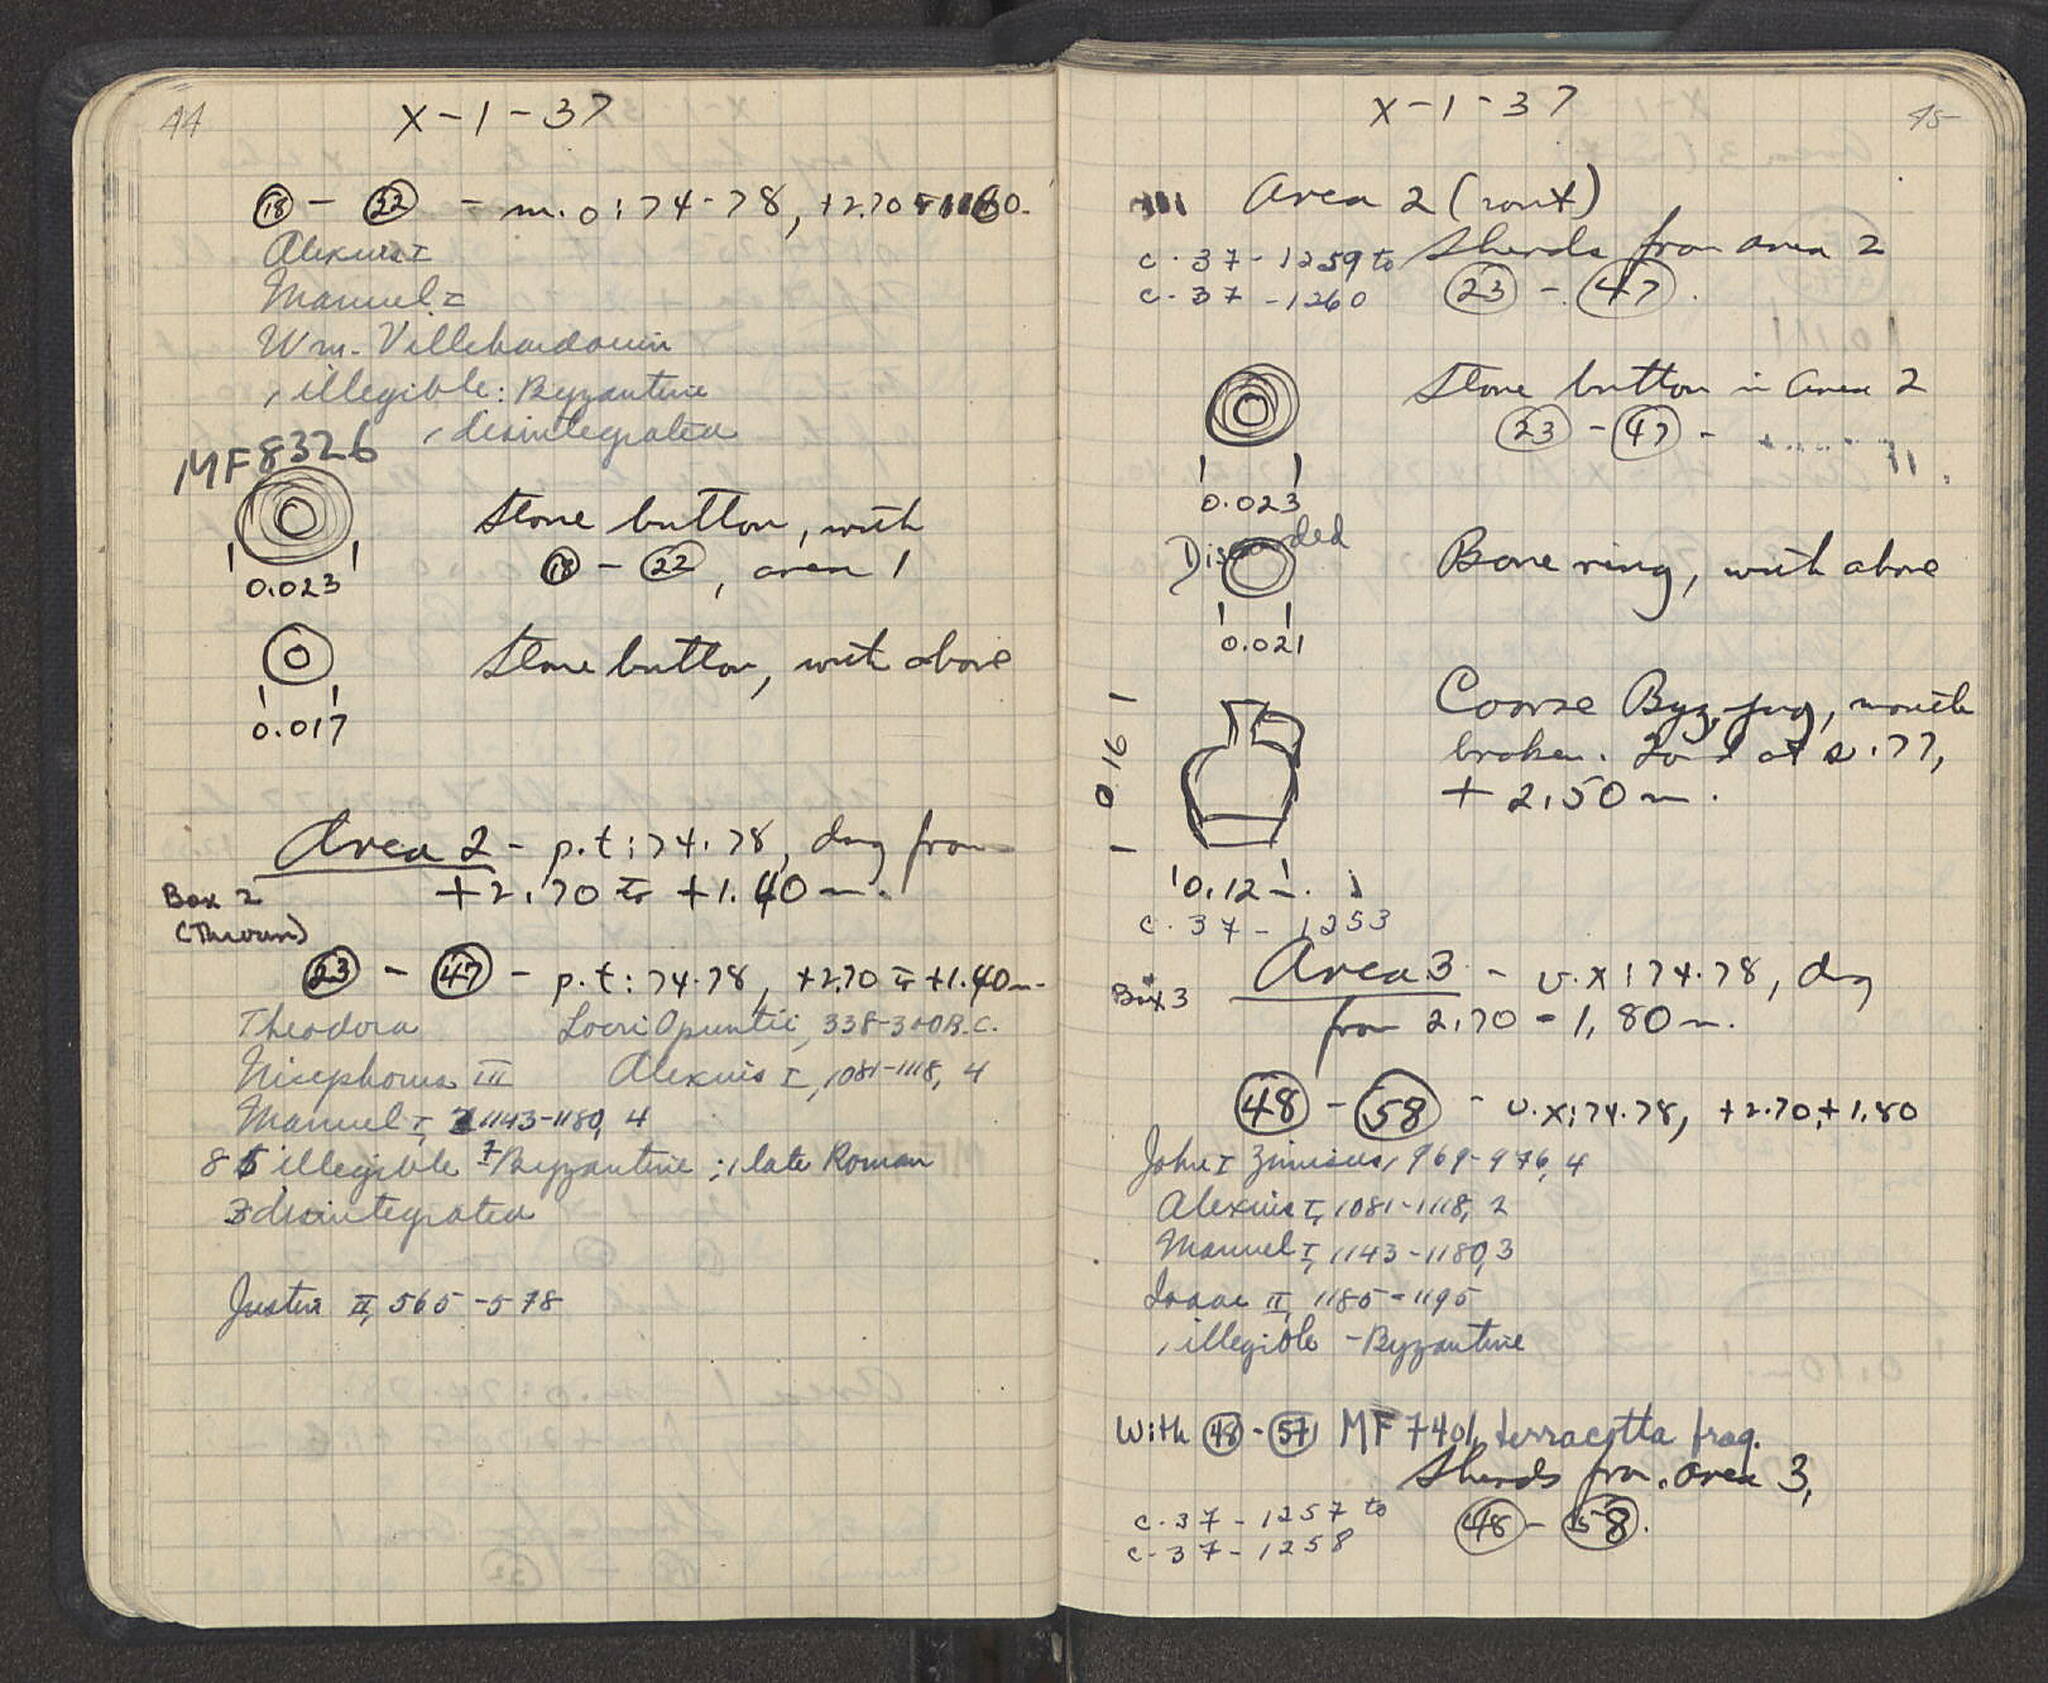 44
X-1-37
(18) - (22) - m.o:74-78, +2.70
Alexius I
Manuel I
Wm. Villehardouin
1 illegible: Byzantine
1 disintegrated
MF8326
Stone button, with
(18) - (22), area 1
0.023
Stone button, with above
0.017
Area 2 - p.t:74.78, dug from
+2.70 to +1.40m.
Box 2
(Thrown)
(23) - (47) - p.t:74.78, +2.70 to +1.40m.
Theodora Locri Opuntii, 338-300B.C.
Nicephorus III Alexius I, 1081-1118, 4
Manuel I, 1143-1180, 4
8 illegible 7 Byzantine; 1 late Roman
3 disintegrated
Justin II, 565-578
X-1-37
45
Area 2 (cont)
C.37-1259 to Sherds from area 2
C-37-1260 (23) - (47).
Stone button in Area 2
(23) - (47) -
0.023
Discarded
Bone ring, with above
0.021
Coarse Byz. jug, mouth
broken. at s.77,
+2.50m.
0.16
0.12m.
C.37-1253
Area 3 - v.x:74.78, dug
Box 3
from 2.70-1.80m.
(48) - (58) - v.x:74.78, +2.70, +1.80
John I Zimisces, 969-976, 4
Alexius I, 1081-1118, 2
Manuel I, 1143-1180, 3
Isaac II, 1185-1195
1 illegible - Byzantine
With (48)-(57) MF 7401, terracotta frag.
Sherds from area 3,
C.37-1257 to (48) - (58).
C-37-1258